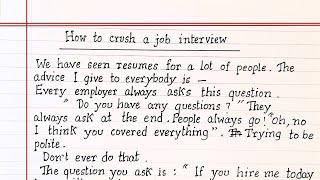 How to crush a job interview
We have seen resumes for a lot of people. The
advice I give to everybody is —
Every employer always asks this question.
" Do you have any questions ? " They
always ask at the end. People always go! "oh, no
I think you covered everything". Trying to be
polite.
Don't ever do that.
The question you ask is : " If you hire me today